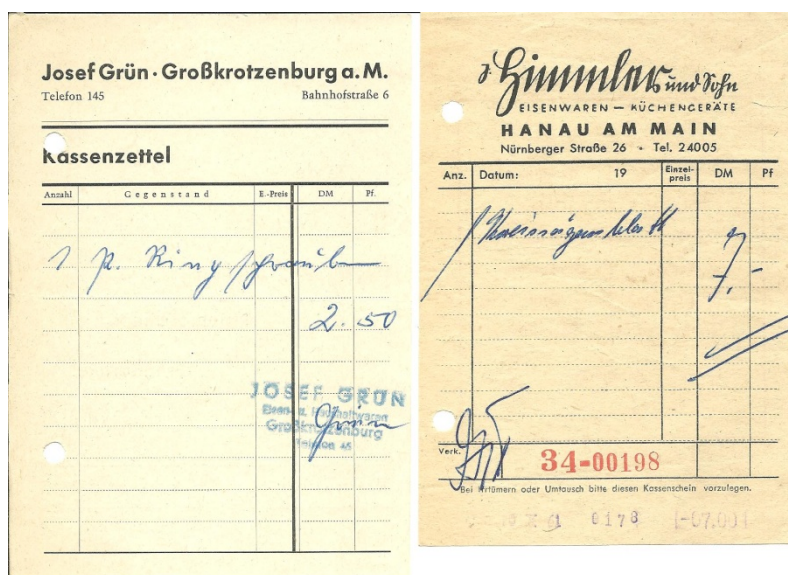 Josef Grün · Großkrotzenburg a. M.
Telefon 145 Bahnhofstraße 6
Kassenzettel
Anzahl Gegenstand E.-Preis DM Pf.
1 P. Ringschrauben
2.50
JOSEF GRÜN
Eisen- u. Haushaltwaren
Großkrotzenburg
Telefon 45
Grün
J. Himmler und Sohn
EISENWAREN — KÜCHENGERÄTE
HANAU AM MAIN
Nürnberger Straße 26 · Tel. 24005
Anz. Datum: 19 Einzel-preis DM Pf
1 Kreissägenblatt
7.-
Verk.
34-00198
Bei Irrtümern oder Umtausch bitte diesen Kassenschein vorzulegen.
0178 -07.00